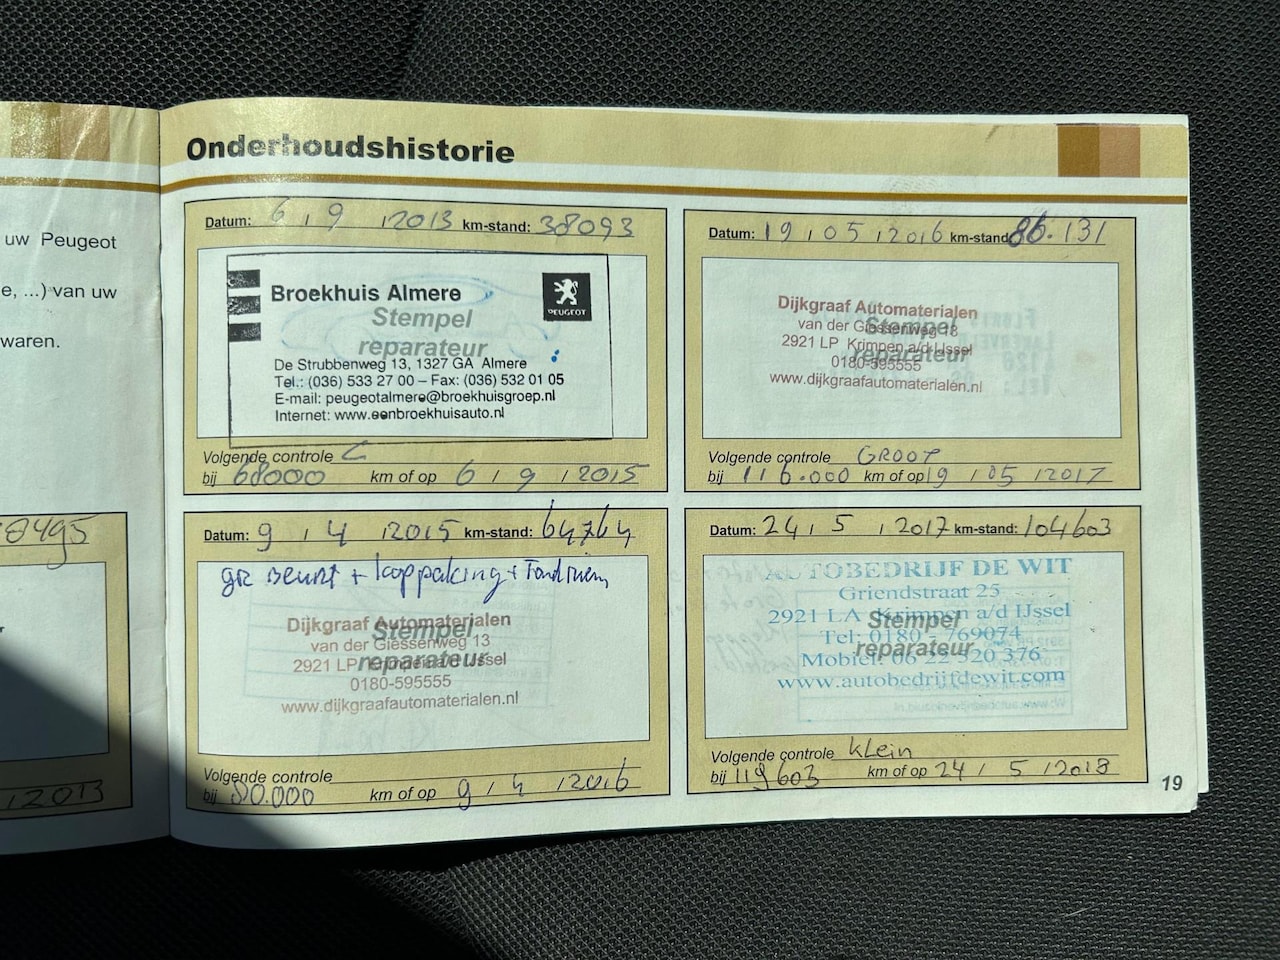 Onderhoudshistorie
uw Peugeot
e, ...) van uw
waren.
8495
2013
Datum: 6 / 9 / 2013 km-stand: 38093
Broekhuis Almere
PEUGEOT
Stempel
reparateur
De Strubbenweg 13, 1327 GA Almere
Tel.: (036) 533 27 00 – Fax: (036) 532 01 05
E-mail: peugeotalmere@broekhuisgroep.nl
Internet: www.eenbroekhuisauto.nl
Volgende controle C
bij 68000 km of op 6 / 9 / 2015
Datum: 19 / 05 / 2016 km-stand: 86.131
Dijkgraaf Automaterialen
Stempel
van der Giessenweg 13
2921 LP Krimpen a/d IJssel
reparateur
0180-595555
www.dijkgraafautomaterialen.nl
Volgende controle GROOT
bij 116.000 km of op 19 / 05 / 2017
Datum: 9 / 4 / 2015 km-stand: 64764
gr Beurt + koppaking +
Dijkgraaf Automaterialen
Stempel
van der Giessenweg 13
2921 LP Krimpen a/d IJssel
reparateur
0180-595555
www.dijkgraafautomaterialen.nl
Volgende controle
bij 80.000 km of op 9 / 4 / 2016
Datum: 24 / 5 / 2017 km-stand: 104603
AUTOBEDRIJF DE WIT
Griendstraat 25
2921 LA Krimpen a/d IJssel
Stempel
Tel: 0180 - 769074
reparateur
Mobiel: 06 22 520 376
www.autobedrijfdewit.com
Volgende controle Klein
bij 119603 km of op 24 / 5 / 2018
19